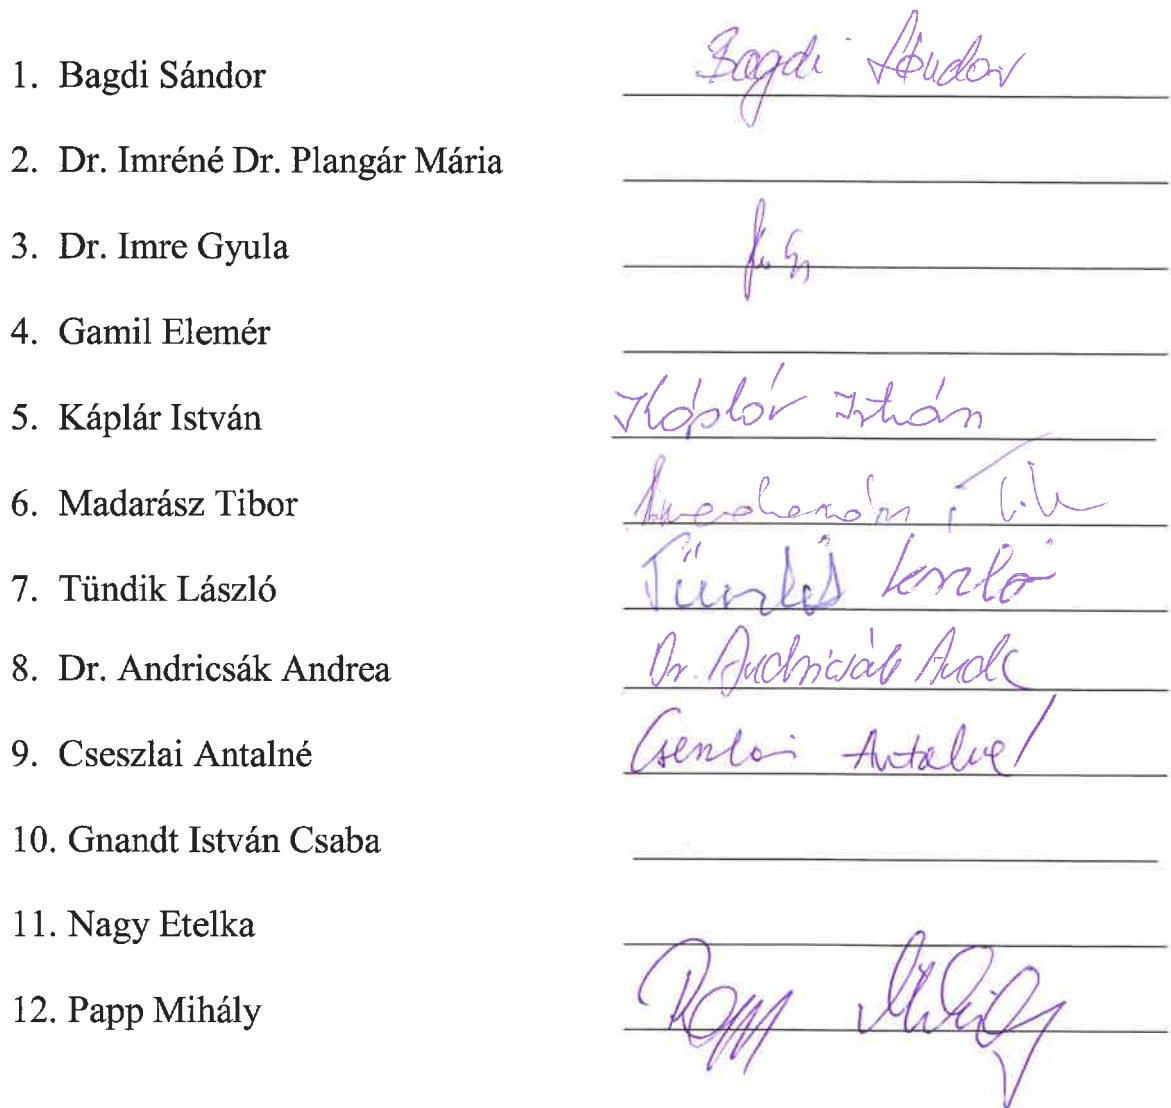 1. Bagdi Sándor Bagdi Sándor
2. Dr. Imréné Dr. Plangár Mária
3. Dr. Imre Gyula
4. Gamil Elemér
5. Káplár István Káplár István
6. Madarász Tibor
7. Tündik László Tündik László
8. Dr. Andricsák Andrea Dr. Andricsák
9. Cseszlai Antalné Cseszlai Antalné
10. Gnandt István Csaba
11. Nagy Etelka
12. Papp Mihály Papp Mihály